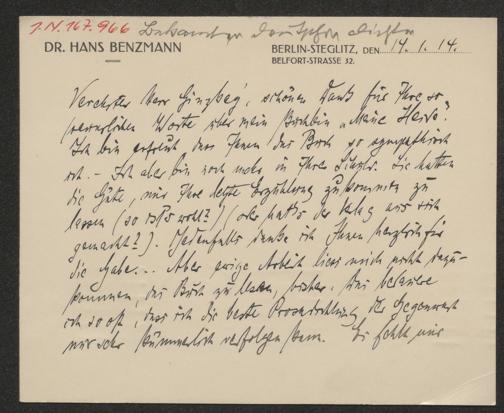 I.N. 167.966 Bekannter deutscher Dichter
DR. HANS BENZMANN
BERLIN-STEGLITZ, DEN 14. 1. 14.
BELFORT-STRASSE 32.
Verehrter Herr Ginzkey, schönen Dank für Ihre so
freundlichen Worte über mein Büchlein „Meine Heide".
Ich bin erfreut, dass Ihnen das Buch so sympathisch
ist. – Ich aber bin noch mehr in Ihrer Schuld. Sie hatten
die Güte, mir Ihre letzte Erzählung zukommen zu
lassen (so ists wohl?) (oder hatts der Verlag aus sich
gemacht?). Jedenfalls danke ich Ihnen herzlich für
die Gabe... Aber ewige Arbeit liess mich nicht dazu-
kommen, das Buch zu lesen, bisher.
ich so oft, dass ich die beste Prosadichtung der Gegenwart
nur sehr kümmerlich verfolgen kann. Es fehlt mir